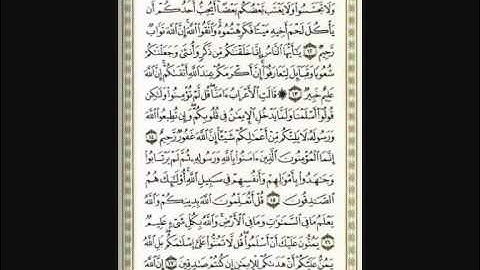 وَلَا تَجَسَّسُوا۟ وَلَا يَغْتَب بَّعْضُكُم بَعْضًا ۚ أَيُحِبُّ أَحَدُكُمْ أَن
يَأْكُلَ لَحْمَ أَخِيهِ مَيْتًا فَكَرِهْتُمُوهُ ۚ وَٱتَّقُوا۟ ٱللَّهَ ۚ إِنَّ ٱللَّهَ تَوَّابٌ
رَّحِيمٌ ١٢ يَـٰٓأَيُّهَا ٱلنَّاسُ إِنَّا خَلَقْنَـٰكُم مِّن ذَكَرٍ وَأُنثَىٰ وَجَعَلْنَـٰكُمْ
شُعُوبًا وَقَبَآئِلَ لِتَعَارَفُوٓا۟ ۚ إِنَّ أَكْرَمَكُمْ عِندَ ٱللَّهِ أَتْقَىٰكُمْ ۚ إِنَّ ٱللَّهَ
عَلِيمٌ خَبِيرٌ ١٣ ۞ قَالَتِ ٱلْأَعْرَابُ ءَامَنَّا ۖ قُل لَّمْ تُؤْمِنُوا۟ وَلَـٰكِن
قُولُوٓا۟ أَسْلَمْنَا وَلَمَّا يَدْخُلِ ٱلْإِيمَـٰنُ فِى قُلُوبِكُمْ ۖ وَإِن تُطِيعُوا۟ ٱللَّهَ
وَرَسُولَهُۥ لَا يَلِتْكُم مِّنْ أَعْمَـٰلِكُمْ شَيْـًٔا ۚ إِنَّ ٱللَّهَ غَفُورٌ رَّحِيمٌ ١٤
إِنَّمَا ٱلْمُؤْمِنُونَ ٱلَّذِينَ ءَامَنُوا۟ بِٱللَّهِ وَرَسُولِهِۦ ثُمَّ لَمْ يَرْتَابُوا۟
وَجَـٰهَدُوا۟ بِأَمْوَٰلِهِمْ وَأَنفُسِهِمْ فِى سَبِيلِ ٱللَّهِ ۚ أُو۟لَـٰٓئِكَ هُمُ
ٱلصَّـٰدِقُونَ ١٥ قُلْ أَتُعَلِّمُونَ ٱللَّهَ بِدِينِكُمْ وَٱللَّهُ
يَعْلَمُ مَا فِى ٱلسَّمَـٰوَٰتِ وَمَا فِى ٱلْأَرْضِ ۚ وَٱللَّهُ بِكُلِّ شَىْءٍ عَلِيمٌ
١٦ يَمُنُّونَ عَلَيْكَ أَنْ أَسْلَمُوا۟ ۖ قُل لَّا تَمُنُّوا۟ عَلَىَّ إِسْلَـٰمَكُم ۖ بَلِ ٱللَّهُ
يَمُنُّ عَلَيْكُمْ أَنْ هَدَىٰكُمْ لِلْإِيمَـٰنِ إِن كُنتُمْ صَـٰدِقِينَ ١٧ إِنَّ ٱللَّهَ